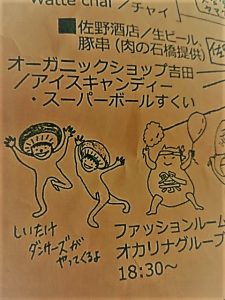 Watte chai／チャイ
■佐野酒店／生ビール
豚串(肉の石橋提供)
オーガニックショップ吉田
／アイスキャンディー
・スーパーボールすくい
しいたけ
ダンサーズが
やってくるよ
ファッションルーム
オカリナグループ
18:30～